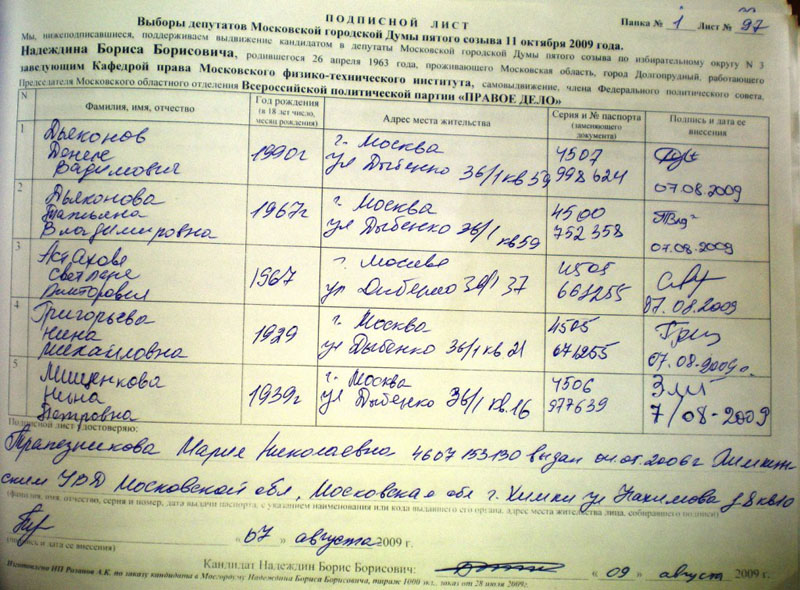 ПОДПИСНОЙ ЛИСТ
Папка № 1 Лист № 97
Выборы депутатов Московской городской Думы пятого созыва 11 октября 2009 года.
Мы, нижеподписавшиеся, поддерживаем выдвижение кандидатом в депутаты Московской городской Думы пятого созыва по избирательному округу N 3
Надеждина Бориса Борисовича, родившегося 26 апреля 1963 года, проживающего Московская область, город Долгопрудный, работающего
заведующим Кафедрой права Московского физико-технического института, самовыдвижение, члена Федерального политического совета,
Председателя Московского областного отделения Всероссийской политической партии «ПРАВОЕ ДЕЛО»
N Фамилия, имя, отчество Год рождения (в 18 лет число, месяц рождения) Адрес места жительства Серия и № паспорта (заменяющего документа) Подпись и дата ее внесения
1 Дьяконов
Денис
Вадимович 1990г г. Москва
ул Дыбенко 36/1 кв 59 4507
998624
07.08.2009
2 Дьяконова
Татьяна
Владимировна 1967г г. Москва
ул Дыбенко 36/1 кв 59 4500
752358
07.08.2009
3 Астахова
Светлана
Викторовна 1967 г. Москва
ул Дыбенко 36/1 37 4505
07.08.2009
4 Григорьева
Нина
Михайловна 1929 г. Москва
ул Дыбенко 36/1 кв 21 4505
671255
07.08.2009г.
5 Мищенкова
Нина
Петровна 1939г г. Москва
ул Дыбенко 36/1 кв. 16 4506
977639
7/08-2009
Подписной лист удостоверяю:
Трапезникова Мария Николаевна 4607 153130 выдан 04.05.2006г Химкин-
ским УВД Московской обл, Московская обл г. Химки ул Нахимова д 8 кв 10
(фамилия, имя, отчество, серия и номер, дата выдачи паспорта, с указанием наименования или кода выдавшего его органа, адрес места жительства лица, собиравшего подписи)
« 07 » августа 2009 г.
(подпись и дата ее внесения)
Кандидат Надеждин Борис Борисович: « 09 » август 2009 г.
Изготовлено ИП Розанов А.К. по заказу кандидата в Мосгордуму Надеждина Бориса Борисовича, тираж 1000 экз., заказ от 28 июля 2009г.